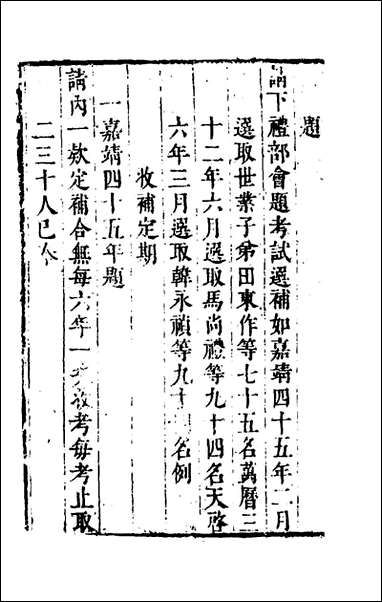 題
請下禮部會題考試選補如嘉靖四十五年二月
選取世業子弟田東作等七十五名萬曆三
十二年六月選取馬尚禮等九十四名天啓
六年三月選取韓永禎等九十名例
收補定期
一嘉靖四十五年題
請內一欵定補合無每六年一次收考每考止取
二三十人已